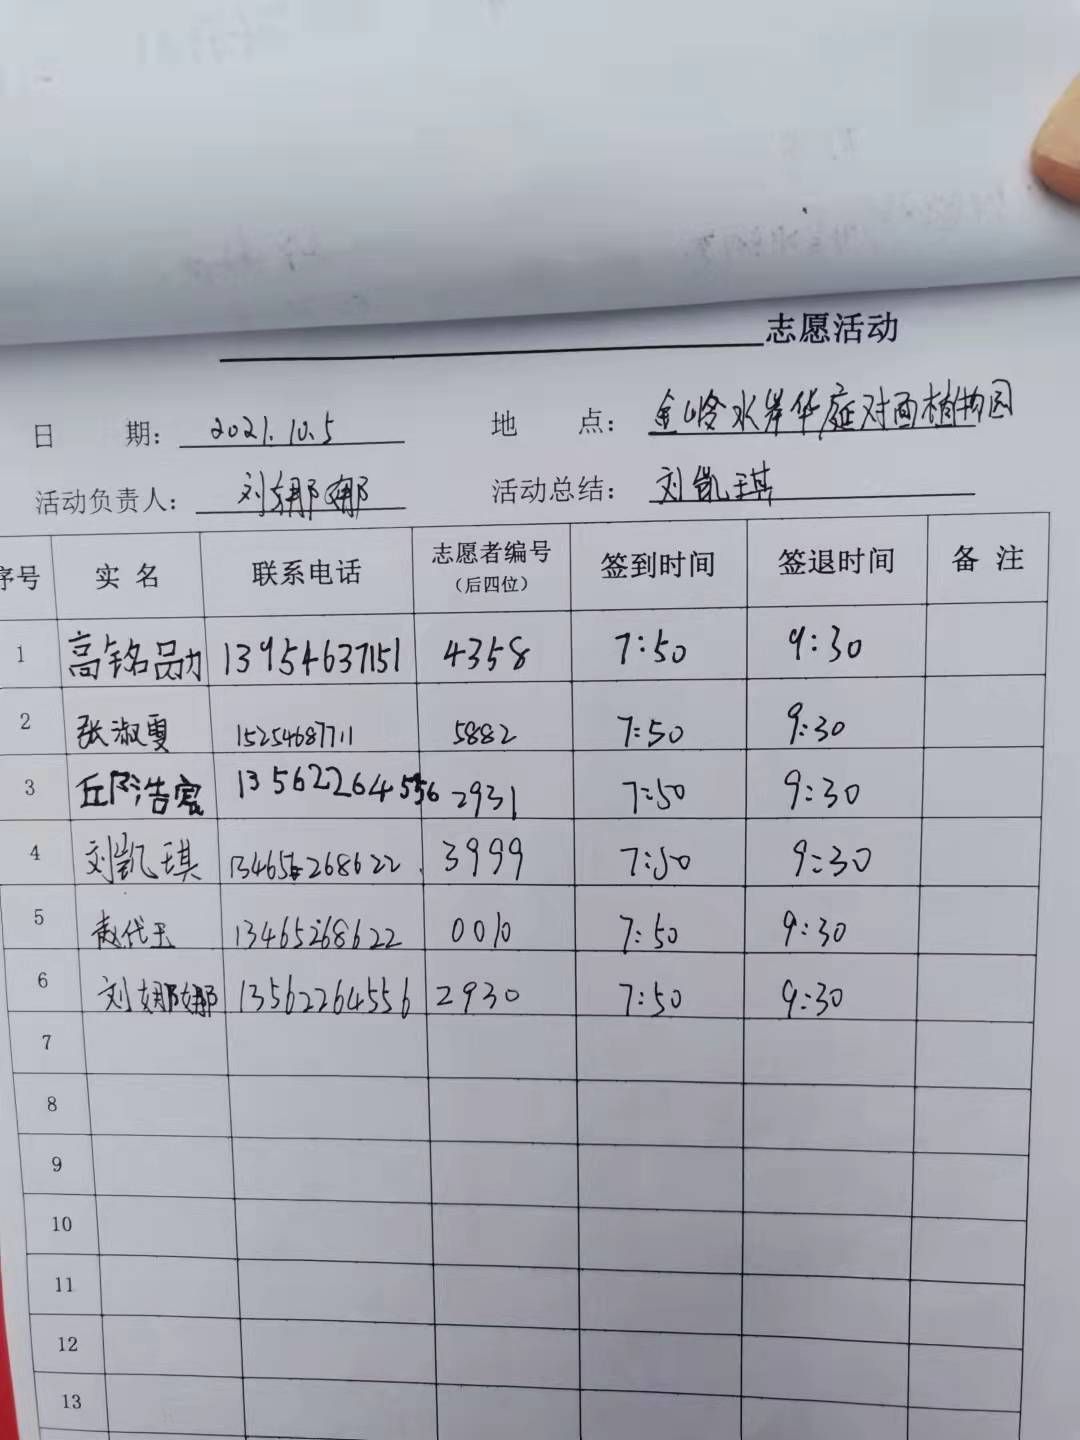 志愿活动
日 期: 2021.10.5 地 点: 金岭水岸华庭对面植物园
活动负责人: 刘娜娜 活动总结: 刘凯琪
序号 实名 联系电话 志愿者编号（后四位） 签到时间 签退时间 备注
1 高铭 13954637151 4358 7:50 9:30
2 张淑雯 15254687711 5882 7:50 9:30
3 丘浩宸 13562264556 2931 7:50 9:30
4 刘凯琪 13465268622 3999 7:50 9:30
5 赵代玉 13465268622 0010 7:50 9:30
6 刘娜娜 13562264556 2930 7:50 9:30
7
8
9
10
11
12
13